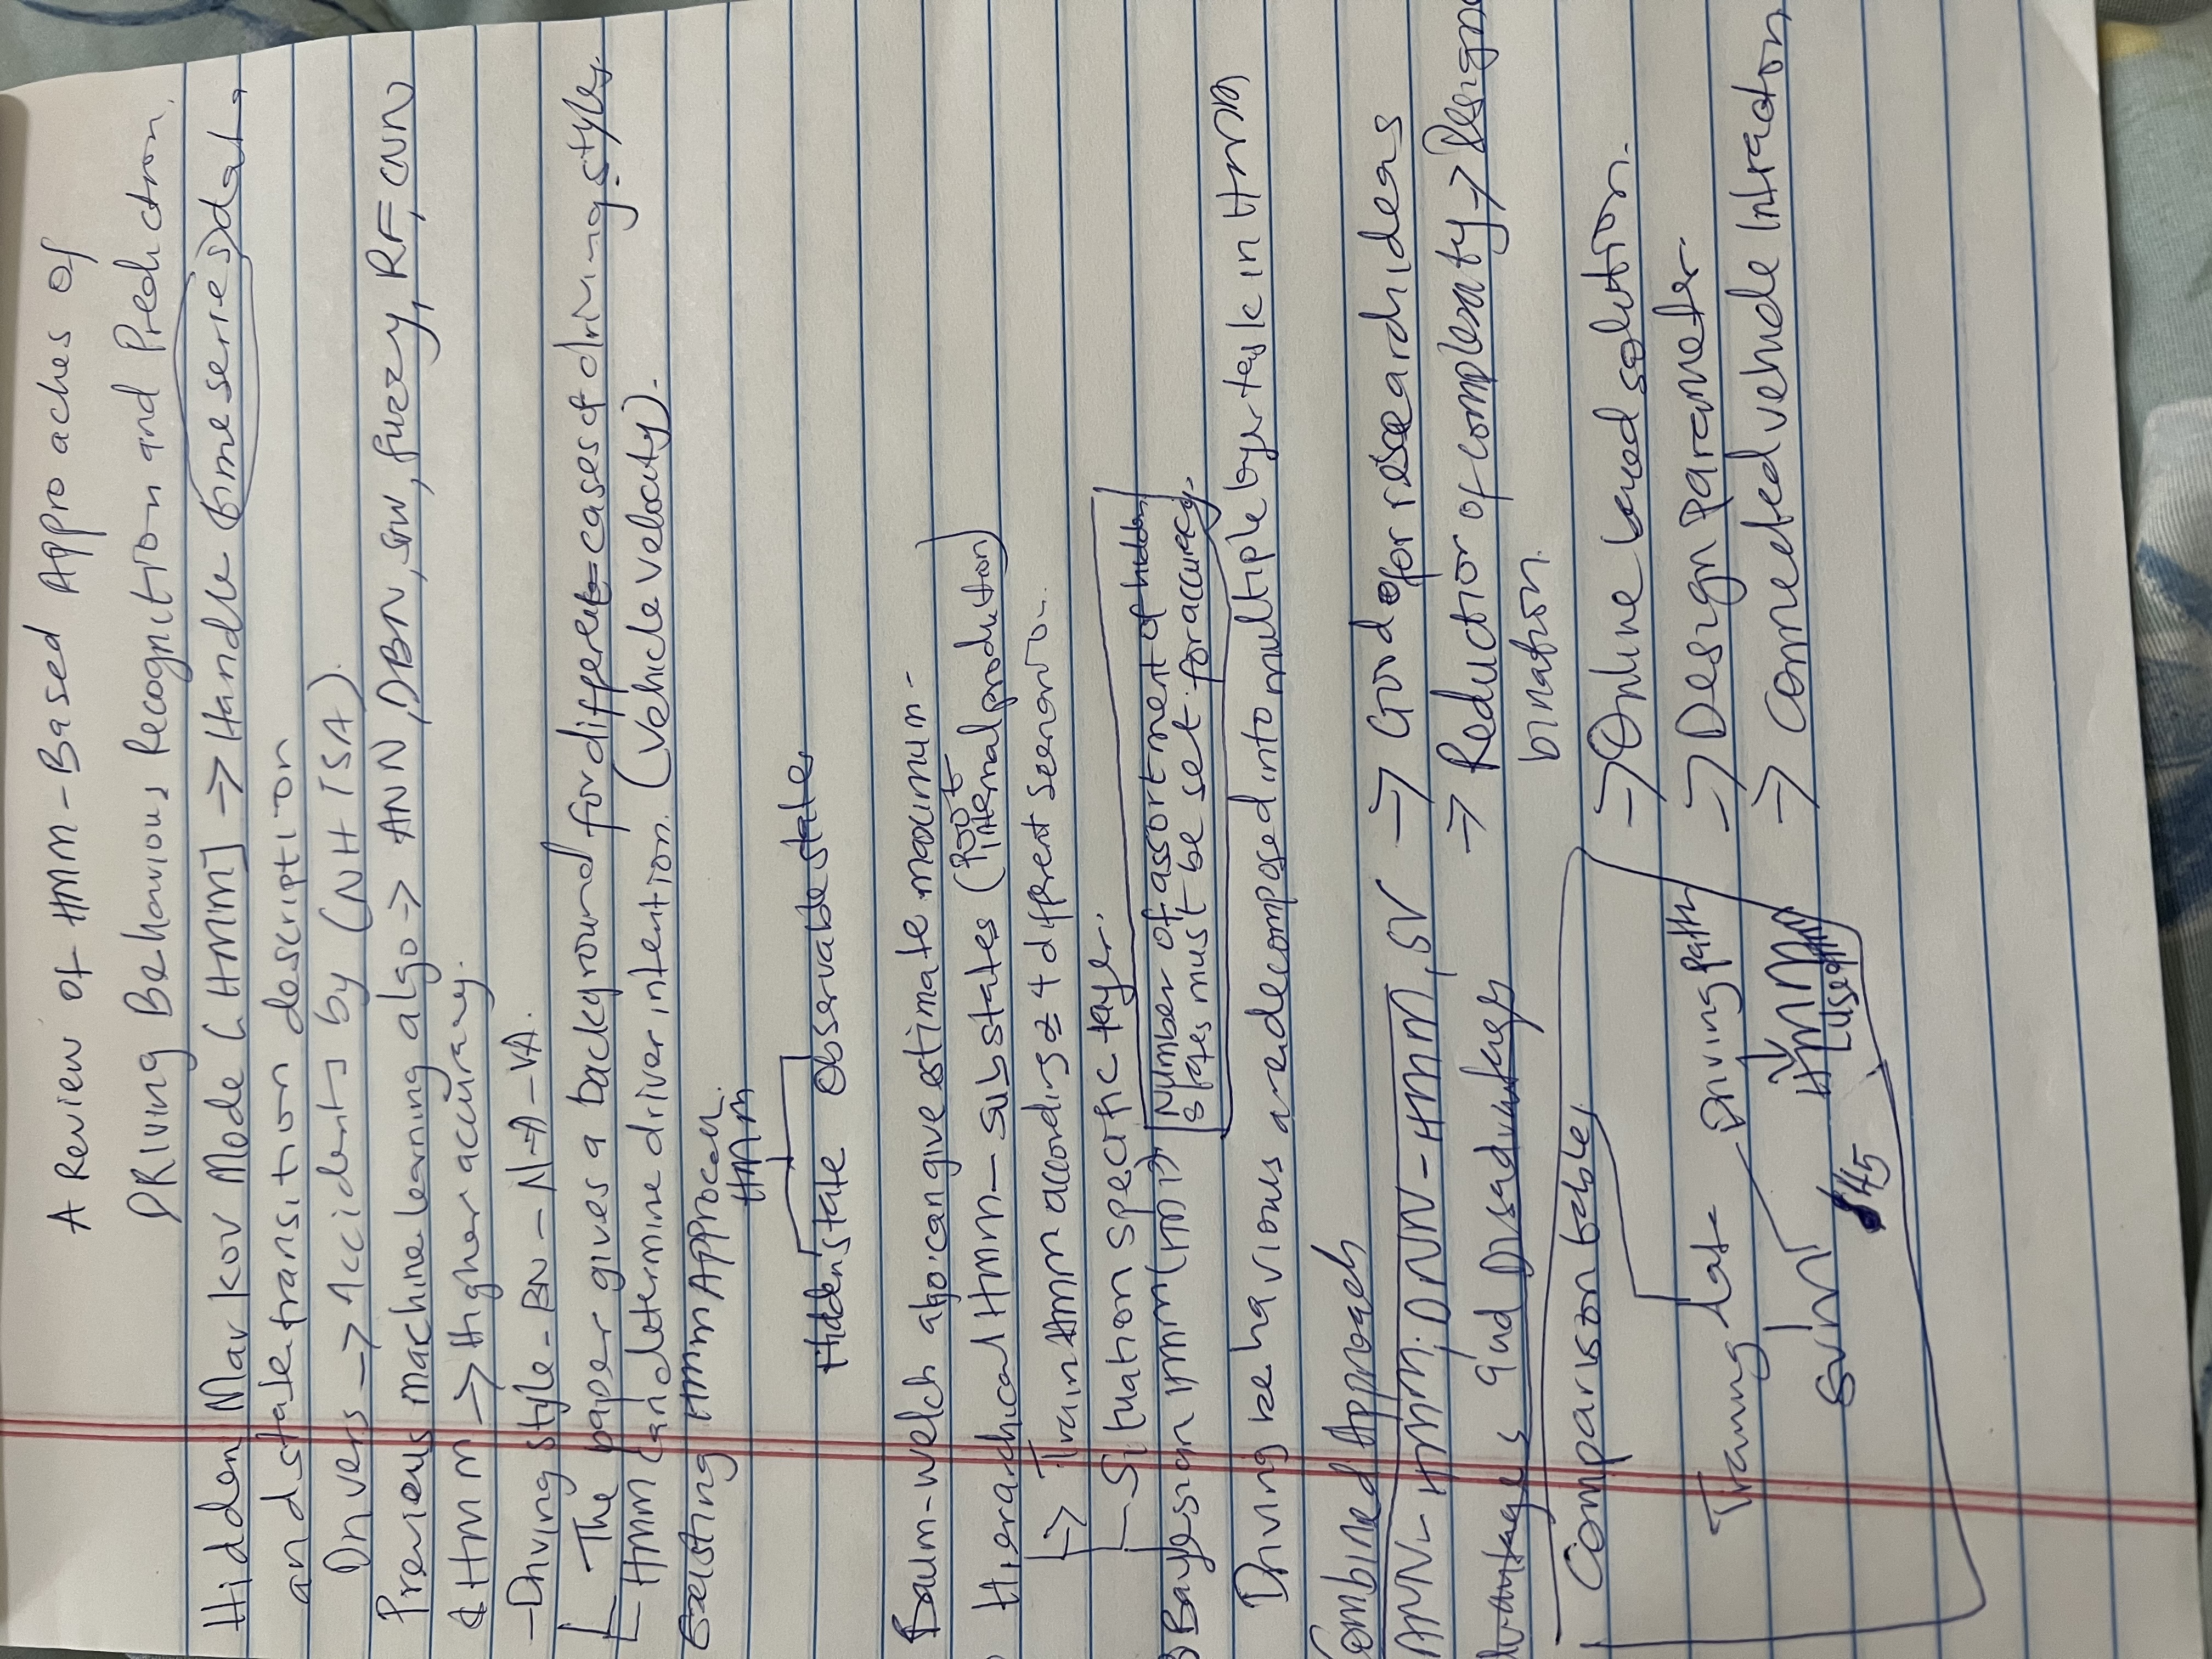 A Review of HMM-Based Approaches of
DRiving Behaviours Recognition and Prediction.
Hidden Markov Mode [HMM] → Handle (time series) data
and state transition description
Drivers → Accidents by (NHTSA).
Previous machine learning algo → ANN, DBN, fuzzy, RF, CNN
& HMM → Higher accuracy.
- Driving style - BN - N-A - VA.
The paper gives a background for different cases of driving styles.
HMM can determine driver intention. (Vehicle velocity).
Existing HMM Approach.
HMM
Hidden state Observable state
Baum-Welch algo. can give estimate maximum -
Hierarchical HMM - substates (Root internal production)
→ Train HMM according 4 different Scenario.
Situation specific layer.
Bayesian HMM Number of assortment of hidden
states must be set for accuracy.
Driving behaviours are decomposed into multiple layer task in HMM
Combined Approach
ANN - HMM; DNN - HMM, SV → Good for research ideas
→ Reduction of complexity → Design
and Disadvantages
bination.
Comparison tables
→ Online based solution.
Training data Driving path
→ Design parameter.
→ Connected vehicle Intraction
SVM HMM
45